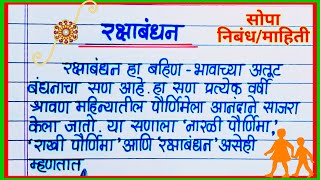 रक्षाबंधन
सोपा
निबंध/माहिती
रक्षाबंधन हा बहिण-भावाच्या अतूट
बंधनाचा सण आहे. हा सण प्रत्येक वर्षी
श्रावण महिन्यातील पौर्णिमेला आनंदाने साजरा
केला जातो. या सणाला 'नारळी पौर्णिमा,'
'राखी पौर्णिमा' आणि 'रक्षाबंधन' असेही
म्हणतात.